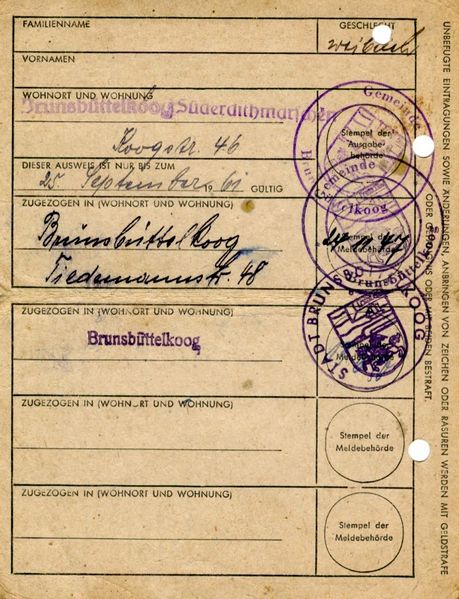 FAMILIENNAME
GESCHLECHT
weiblich
VORNAMEN
WOHNORT UND WOHNUNG
Brunsbüttelkoog Süderdithmarschen
Koogstr. 46
Gemeinde
Stempel der
Ausgabe-
behörde
DIESER AUSWEIS IST NUR BIS ZUM
25. September 61 GÜLTIG
Gemeinde
ZUGEZOGEN IN (WOHNORT UND WOHNUNG)
Brunsbüttelkoog
Tiedemannstr. 48
Stempel der
Meldebehörde
Brunsbüttelkoog
ZUGEZOGEN IN (WOHNORT UND WOHNUNG)
Brunsbüttelkoog
STADT BRUNSBÜTTELKOOG
Meldebehörde
ZUGEZOGEN IN (WOHNORT UND WOHNUNG)
Stempel der
Meldebehörde
ZUGEZOGEN IN (WOHNORT UND WOHNUNG)
Stempel der
Meldebehörde
UNBEFUGTE EINTRAGUNGEN SOWIE ÄNDERUNGEN, ANBRINGEN VON ZEICHEN ODER RASUREN WERDEN MIT GELDSTRAFE
ODER GEFÄNGNIS ODER MIT BEIDEN BESTRAFT.